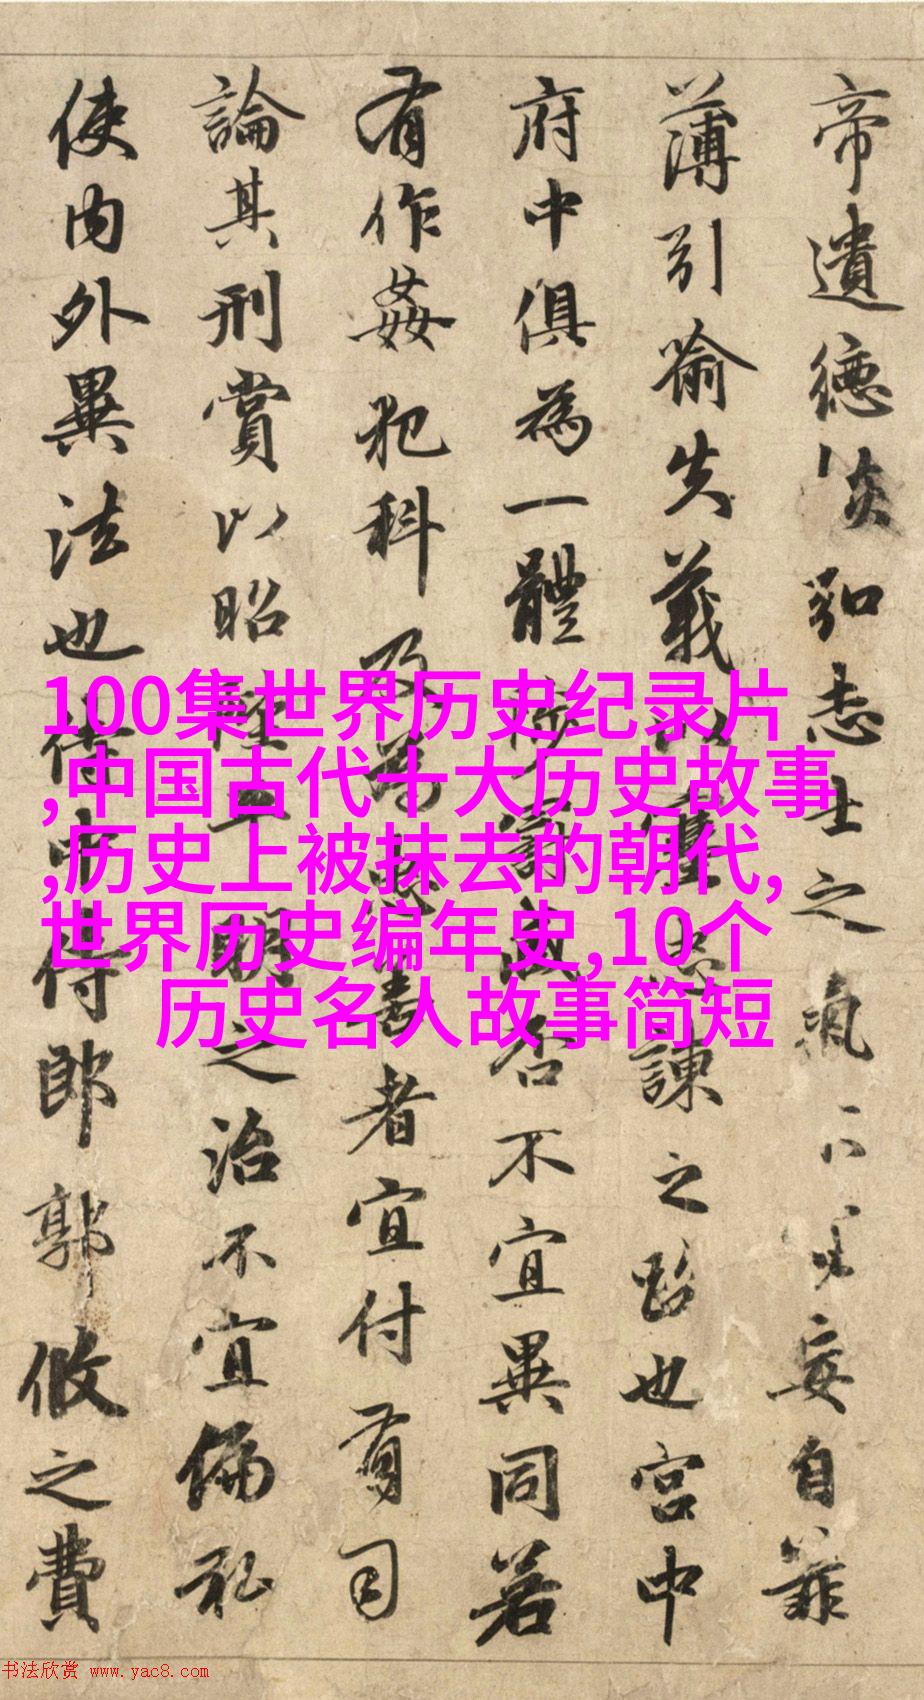 帝遺德恢弘志士之氣不宜妄自菲
薄引喻失義以塞忠諫之路也宮中
府中俱為一體陟罰臧否不宜異同若
有作姦犯科及為忠善者宜付有司
論其刑賞以昭陛下明之治不宜偏私
使内外異法也侍中侍郎郭攸之費
100集世界历史纪录片
,中国古代十大历史故事
,历史上被抹去的朝代,
世界历史编年史,10个
历史名人故事简短
书法欣赏 www.yac8.com